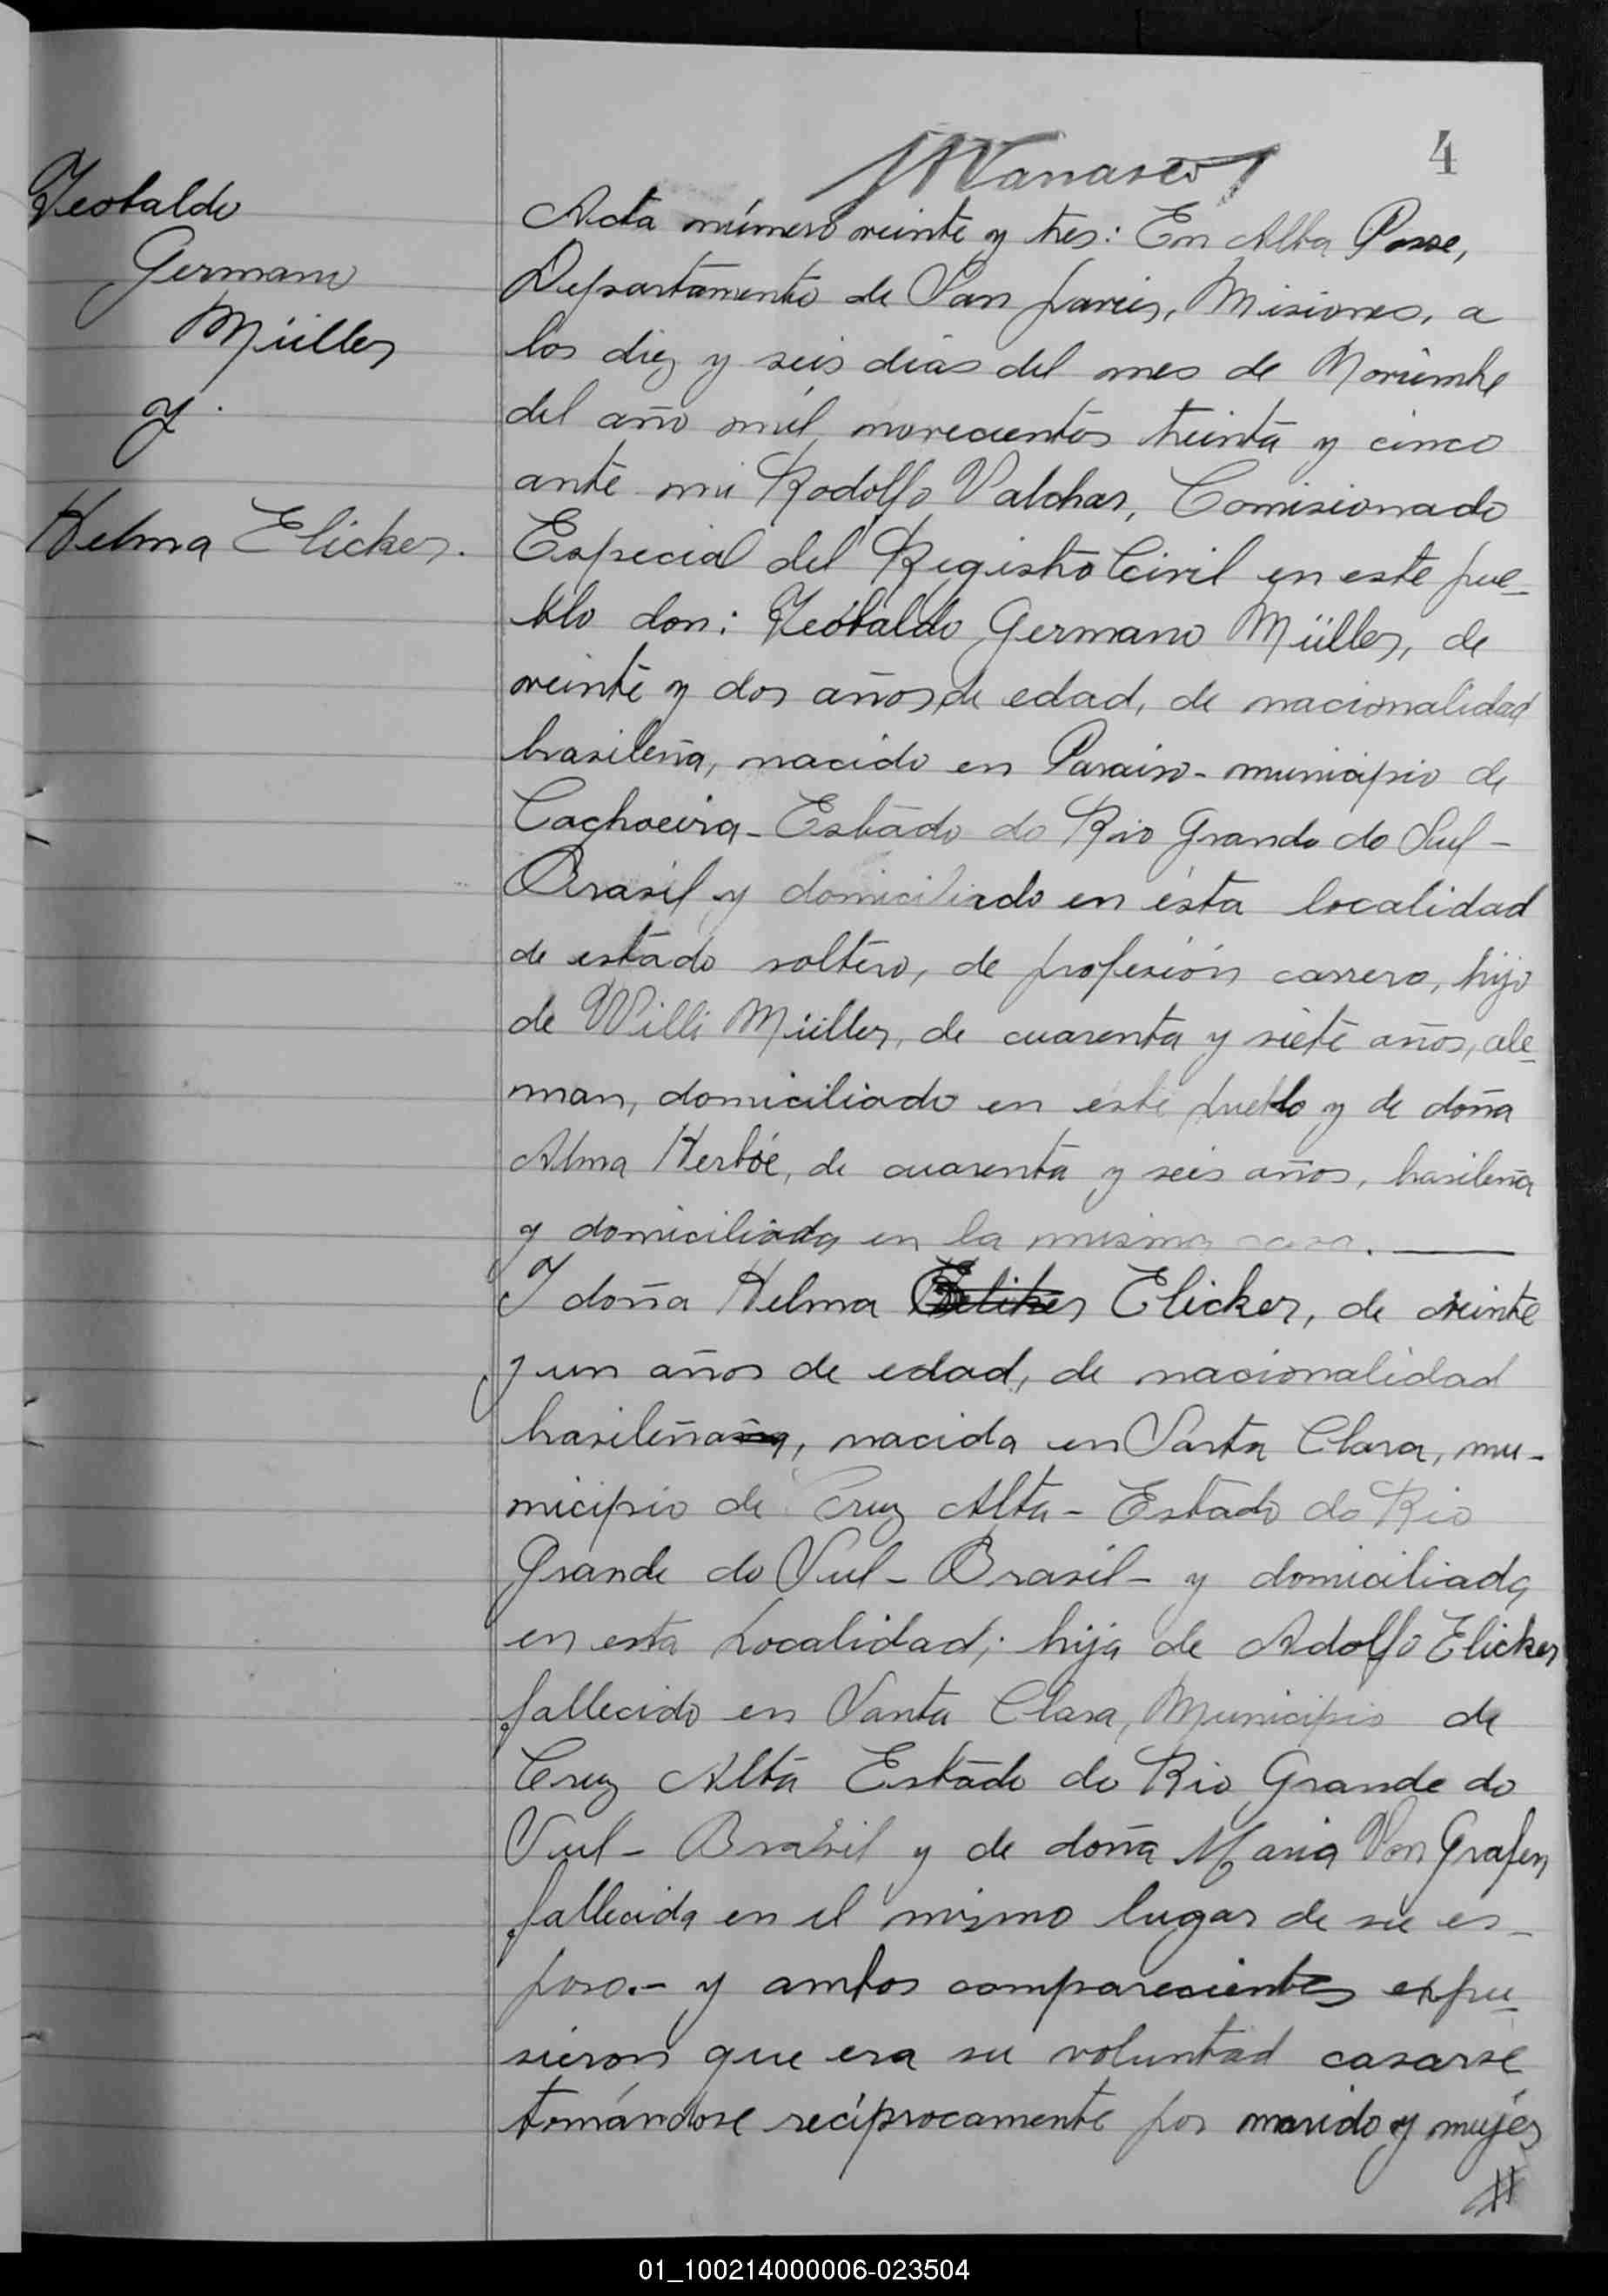 4
Teobaldo
Germano
Müller
y.
Helma Elicker.
Acta número veinte y tres: En Alba Posse,
Departamento de San Javier, Misiones, a
los diez y seis días del mes de Noviembre
del año mil novecientos treinta y cinco
ante mi Rodolfo Valchar, Comisionado
Especial del Registro Civil en este pue-
blo don: Teobaldo Germano Müller, de
veinte y dos años de edad, de nacionalidad
brasileña, nacido en Paraiso - municipio de
Cachoeira - Estado do Rio Grande do Sul -
Brasil y domiciliado en ésta localidad
de estado soltero, de profesión carrero, hijo
de Willi Müller, de cuarenta y siete años, ale-
man, domiciliado en este pueblo y de doña
Alma Herbóe, de cuarenta y seis años, brasileña
y domiciliada en la misma casa.
Y doña Helma Elicker, de veinte
y un años de edad, de nacionalidad
brasileña, nacida en Santa Clara, mu-
nicipio de Cruz Alta - Estado do Rio
Grande do Sul - Brasil - y domiciliada
en esta Localidad; hija de Adolfo Elicker
fallecido en Santa Clara, Municipio de
Cruz Alta Estado do Rio Grande do
Sul - Brasil y de doña Maria Von Grafen
fallecida en el mismo lugar de su es-
poso. - y ambos comparecientes expu-
sieron que era su voluntad casarse
tomándose recíprocamente por marido y mujer
//
01_100214000006-023504